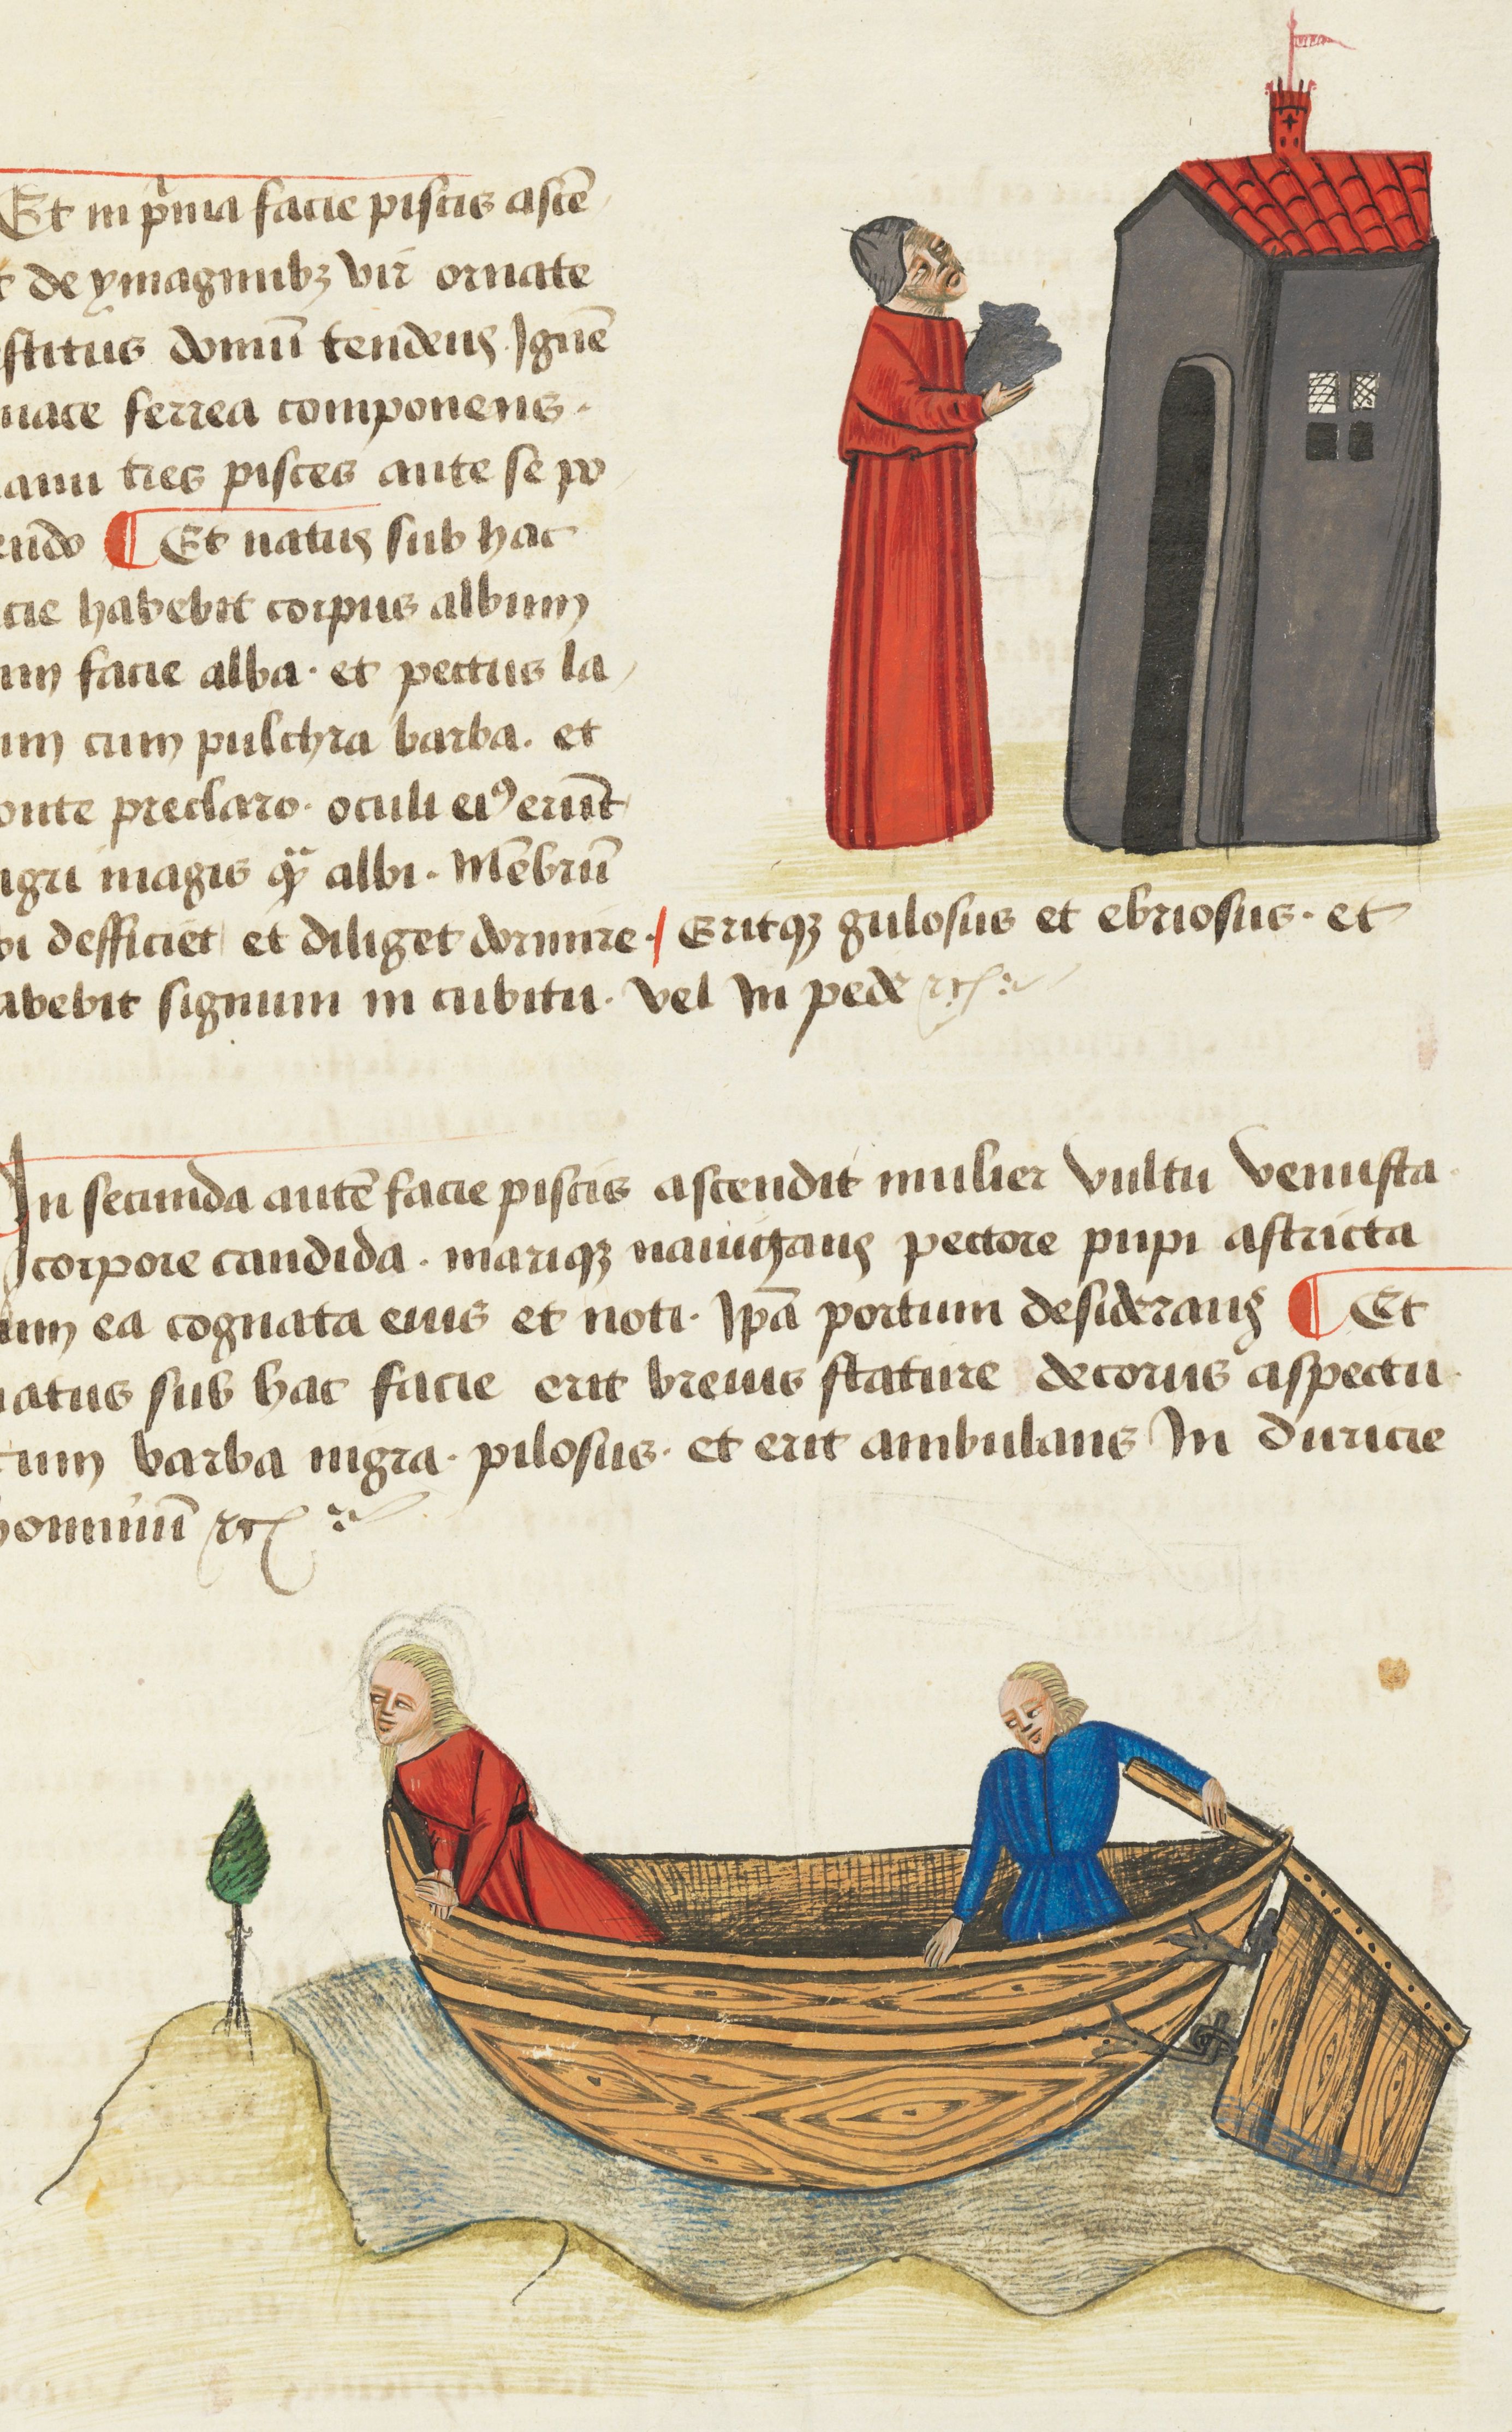 Et in p̄ma facie piscis ascē
t de ymaginibꝫ vir ornate
estitus domū tendens Ignē
nace ferrea componens.
anu tres pisces ante se po
endo ¶ Et natus sub hac
cie habebit corpus album
um facie alba. et pectus la
um cum pulchra barba. et
onte preclaro. oculi eiꝰ erūt
igri magis q̄ albi. Mēbrū
bi defficiet et diliget dormire. / Eritqꝫ gulosus et ebriosus. et
abebit signum in cubitu. vel In pede
In secunda autē facie piscis ascendit mulier vultu venusta.
corpore candida. mariqꝫ nauigans pectore pupi astricta
um ea cognata eius et noti. Ipā portum desiderans ¶ Et
natus sub hac facie erit breuis stature decorus aspectu.
tum barba nigra. pilosus. et erit ambulans In duricie
hominū